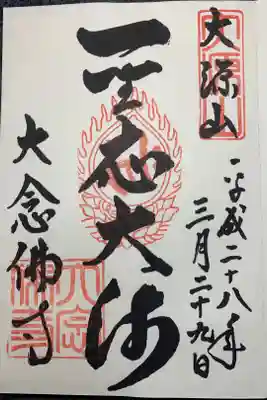 大源山
平成二十八年
三月二十九日
聖応大師
大念佛寺